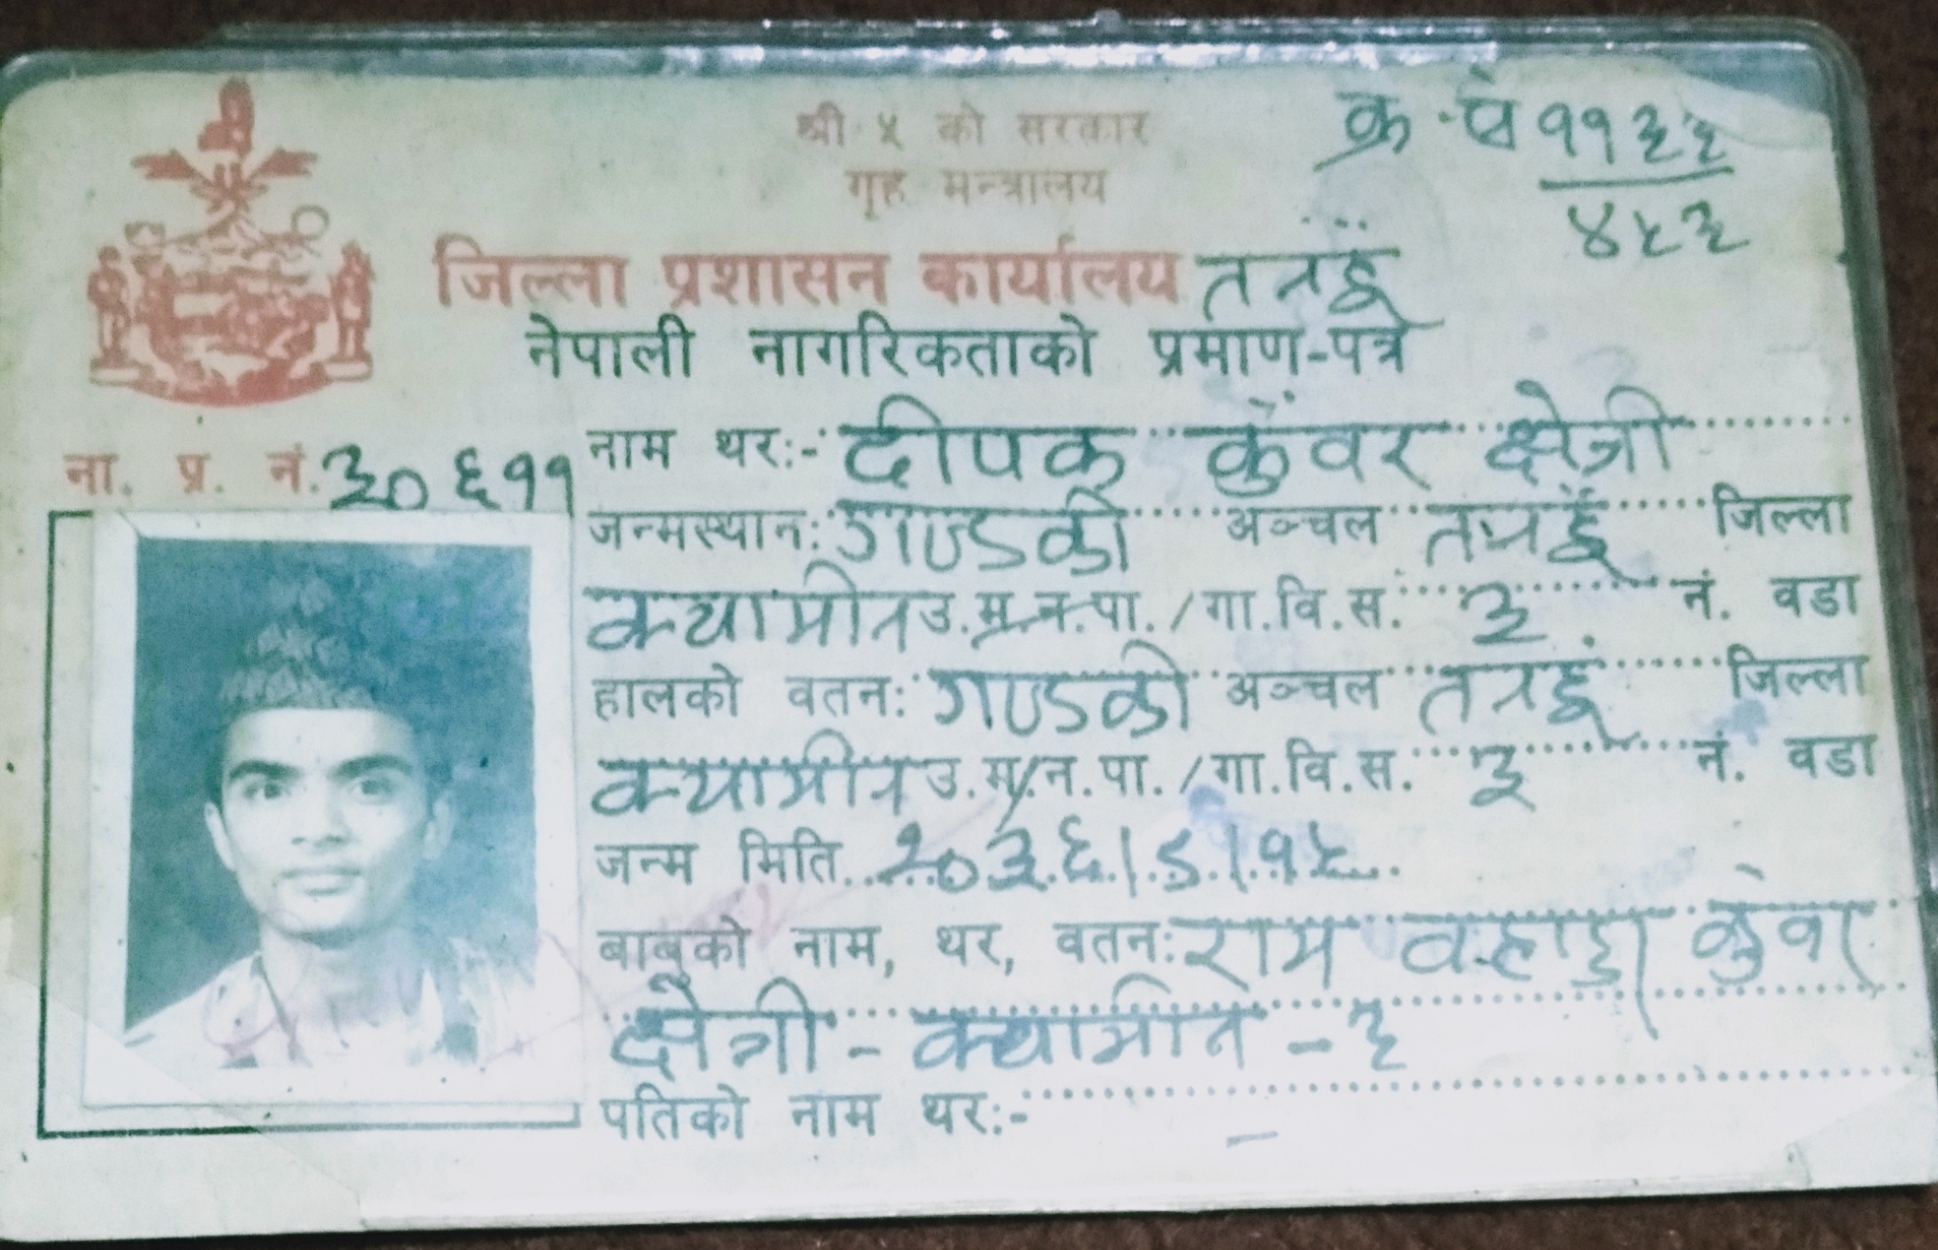 श्री ५ को सरकार
गृह मन्त्रालय
क्र.सं ११३३
४५३
जिल्ला प्रशासन कार्यालय तनहुँ
नेपाली नागरिकताको प्रमाण-पत्र
ना. प्र. नं. ३०६११
नाम थर:- दीपक कुँवर क्षेत्री
जन्मस्थान: गण्डकी अञ्चल तनहुँ जिल्ला
क्यामीन उ.म.न.पा./गा.वि.स. ३ नं. वडा
हालको वतन: गण्डकी अञ्चल तनहुँ जिल्ला
क्यामीन उ.म.न.पा./गा.वि.स. ३ नं. वडा
जन्म मिति २०३६।८।१५
बाबुको नाम, थर, वतन: राम बहादुर कुँवर
क्षेत्री - क्यामीन - ३
पतिको नाम थर:- -